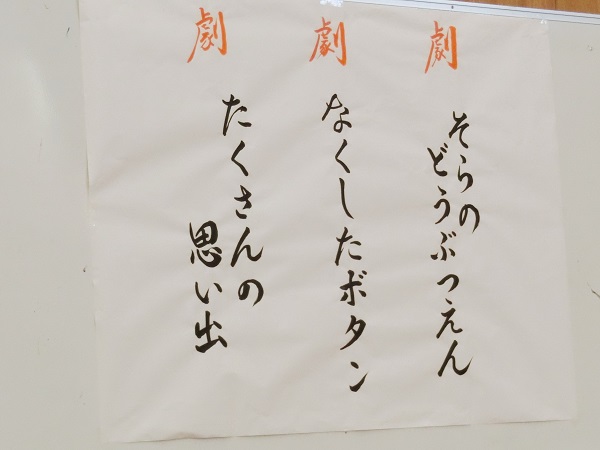 劇
そらの
どうぶつえん
劇
なくしたボタン
劇
たくさんの
思い出